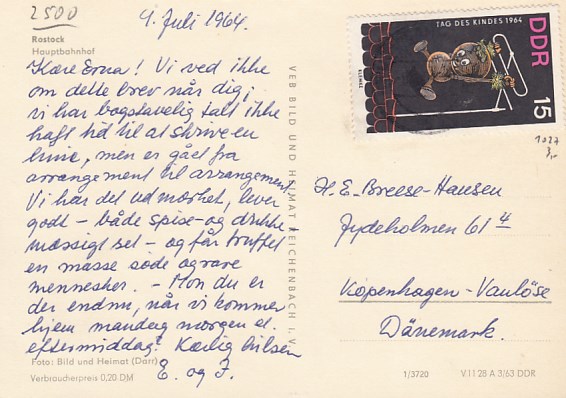 2500
4. Juli 1964.
Rostock
Hauptbahnhof
Kære Erna! Vi ved ikke
om dette brev når dig;
vi har bogstavelig talt ikke
haft tid til at skrive en
linie, men er gået fra
arrangement til arrangement.
Vi har det udmærket, lever
godt – både spise- og drikke
mæssigt set – og får truffet
en masse søde og rare
mennesker. – Mon du er
der endnu, når vi kommer
hjem mandag morgen el.
eftermiddag? Kærlig hilsen
E. og J.
Foto: Bild und Heimat (Darr)
Verbraucherpreis 0,20 DM
VEB BILD UND HEIMAT REICHENBACH I. V.
TAG DES KINDES 1964
DDR
15
KLEMKE
1027
3,-
H. E. Breese-Hansen
Jydeholmen 61 4
Kopenhagen-Vanløse
Dänemark.
1/3720
V 11 28 A 3/63 DDR